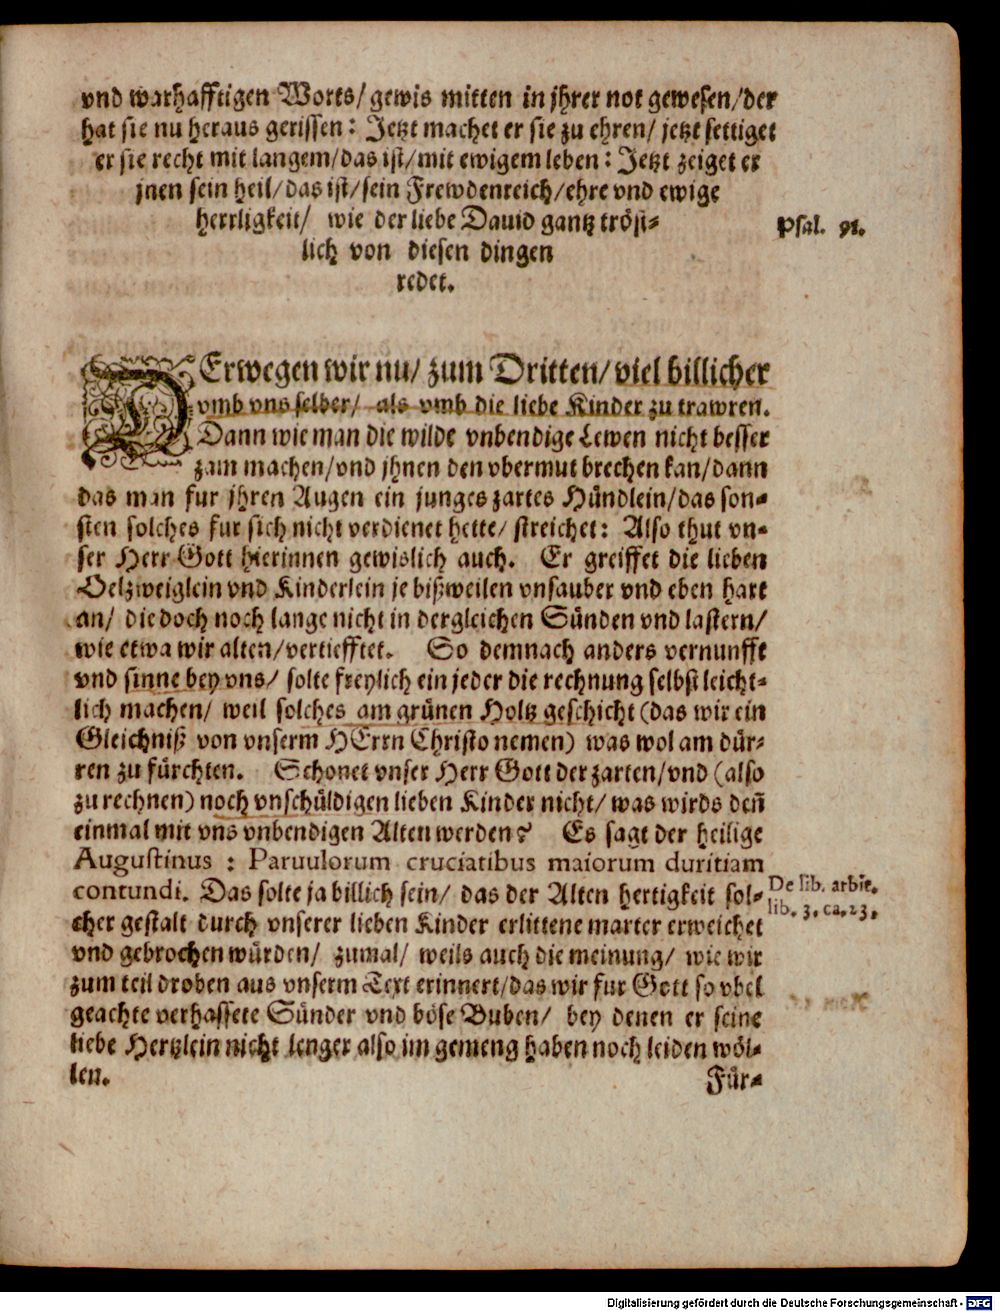 vnd warhafftigen Worts/ gewis mitten in jhrer not gewesen/ der
hat sie nu heraus gerissen: Jetzt machet er sie zu ehren/ jetzt settiget
er sie recht mit langem/ das ist/ mit ewigem leben: Jetzt zeiget er
jnen sein heil/ das ist/ sein Frewdenreich/ ehre vnd ewige
herrligkeit/ wie der liebe Dauid gantz tröst-
Psal. 91.
lich von diesen dingen
redet.
DErwegen wir nu/ zum Dritten/ viel billicher
vmb vns selber/ als vmb die liebe Kinder zu trawren.
Dann wie man die wilde vnbendige Lewen nicht besser
zam machen/ vnd jhnen den vbermut brechen kan/ dann
das man fur jhren Augen ein junges zartes Hündlein/ das son-
sten solches fur sich nicht verdienet hette/ streichet: Also thut vn-
ser Herr Gott hierinnen gewislich auch. Er greiffet die lieben
Oelzweiglein vnd Kinderlein je bißweilen vnsauber vnd eben hart
an/ die doch noch lange nicht in dergleichen Sünden vnd lastern/
wie etwa wir alten/ vertiefftet. So demnach anders vernunfft
vnd sinne bey vns/ solte freylich ein jeder die rechnung selbst leicht-
lich machen/ weil solches am grünen Holtz geschicht (das wir ein
Gleichniß von vnserm HErrn Christo nemen) was wol am dür-
ren zu fürchten. Schonet vnser Herr Gott der zarten/ vnd (also
zu rechnen) noch vnschüldigen lieben Kinder nicht/ was wirds deñ
einmal mit vns vnbendigen Alten werden? Es sagt der heilige
Augustinus : Paruulorum cruciatibus maiorum duritiam
contundi. Das solte ja billich sein/ das der Alten hertigkeit sol-
De lib. arbit.
lib. 3. ca. 23.
cher gestalt durch vnserer lieben Kinder erlittene marter erweichet
vnd gebrochen würden/ zumal/ weils auch die meinung/ wie wir
zum teil droben aus vnserm Text erinnert/ das wir fur Gott so vbel
geachte verhassete Sünder vnd böse Buben/ bey denen er seine
liebe Hertzlein nicht lenger also im gemeng haben noch leiden wöl-
len.
Für-
Digitalisierung gefördert durch die Deutsche Forschungsgemeinschaft - DFG